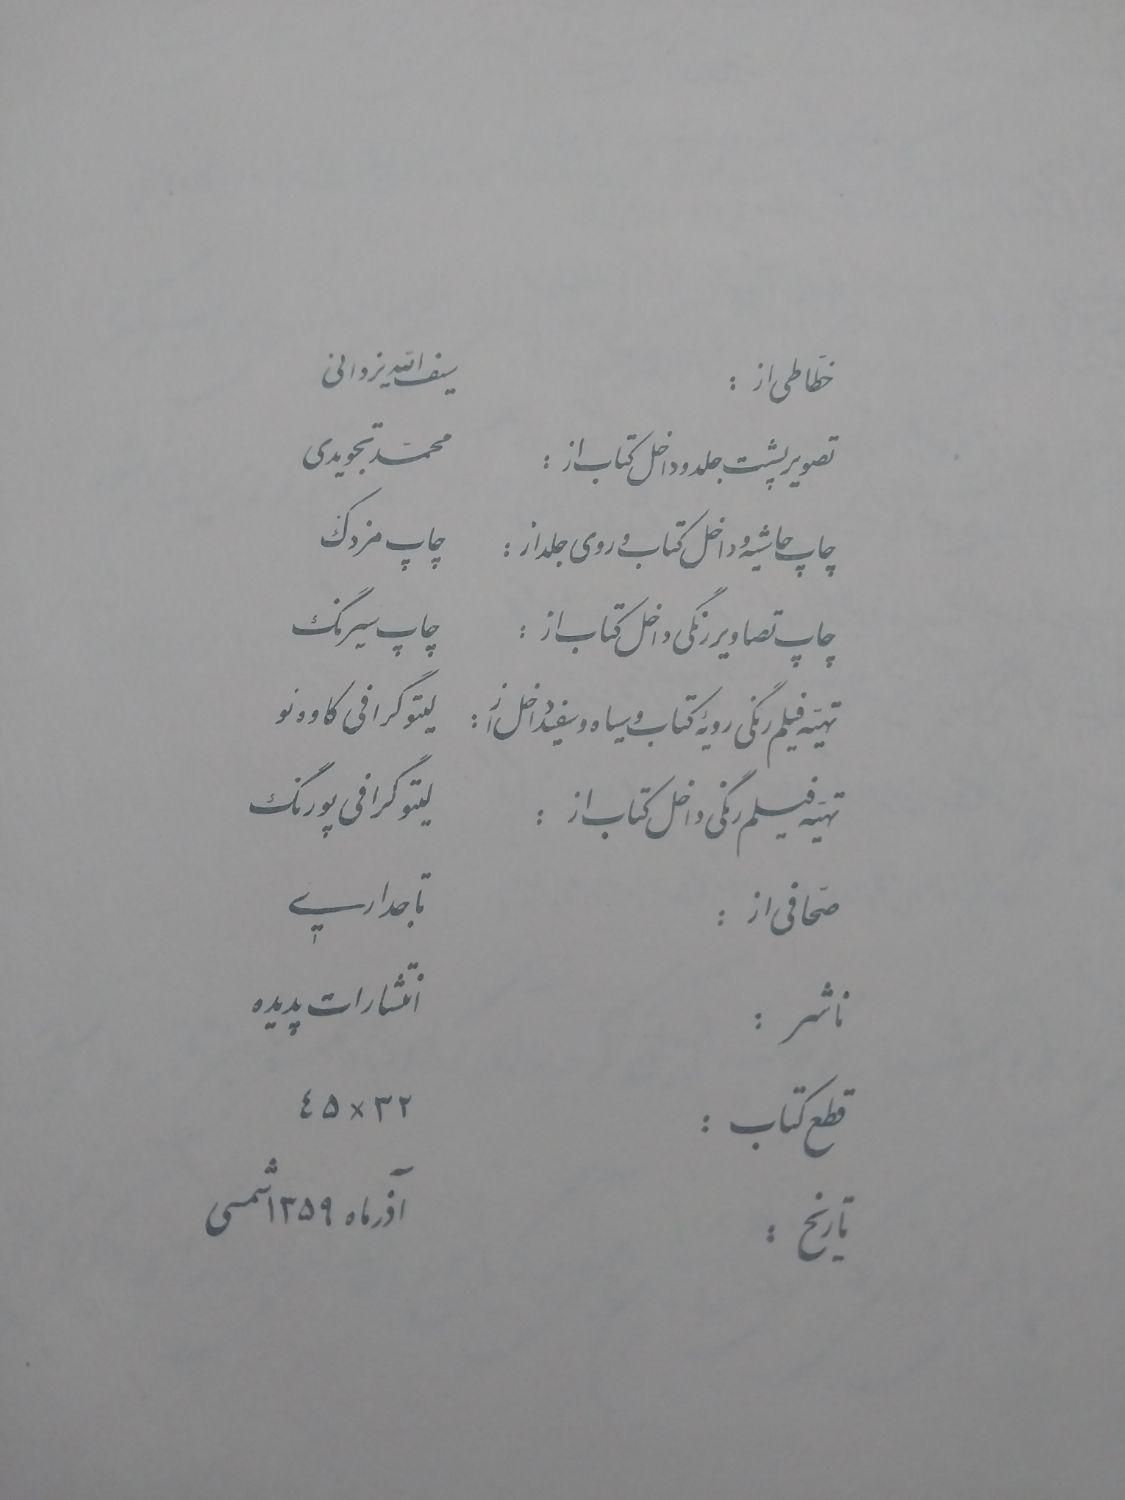 خطّاطی از : سیف الله یزدانی
تصویر پشت جلد و داخل کتاب از : محمّد تجویدی
چاپ حاشیه و داخل کتاب و روی جلد از : چاپ مزدک
چاپ تصاویر رنگی داخل کتاب از : چاپ سیرنگ
تهیّه فیلم رنگی رویهٔ کتاب و سیاه و سفید داخل از : لیتوگرافی کاوونو
تهیّه فیلم رنگی داخل کتاب از : لیتوگرافی پورنگ
صحّافی از : تاجدار
ناشر : انتشارات پدیده
قطع کتاب : ۳۲ × ۴۵
تاریخ : آذرماه ۱۳۵۹ شمسی